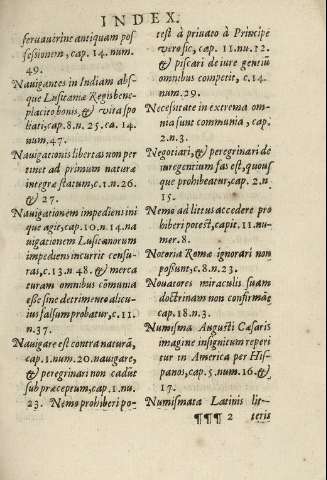 INDEX.
seruauerine antiquam pos
sessionem, cap. 14. num.
49.
Nauigantes in Indiam abs-
que Lusitaniæ Regis bene-
placito bonis, & vita spo
liati, cap. 8. n. 25. ca. 14.
num. 47.
Nauigationis libertas non per
tinet ad primum naturæ
integræ statum, c. 1. n. 26.
& 27.
Nauigationem impediens ini
que agit, cap. 10. n. 14. na
uigationem Lusitanorum
impediens incurrit censu-
ras, c. 13. n 48. & merca
turam omnibus cõmunia
esse sine detrimento alicu-
ius falsum probatur, c. 11.
n. 37.
Nauigare est contra naturã,
cap. 1. num. 20. nauigare,
& peregrinari non cadũt
sub præceptum, cap. 1. nu.
23. Nemo prohiberi po-
test à priuato à Principe
vero sic, cap. 11. nu. 12.
& piscari de iure gentiũ
omnibus competit, c. 14.
num. 29.
Necessitate in extrema om-
nia sunt communia, cap.
2. n. 3.
Negotiari, & peregrinari de
iure gentium fas est, quous
que prohibeatur, cap. 2. n
15.
Nemo ad littus accedere pro
hiberi potest, capit. 11. nu-
mer. 8.
Notoria Romæ ignorari non
possunt, c. 8. n. 23.
Nouatores miraculis suam
doctrinam non confirmãt
cap. 18. n. 3.
Numisma Augusti Cæsaris
imagine insignitum reperi
tur in America per His-
panos, cap. 5. num. 16. &
17.
Numismata Latinis lit-
¶¶¶ 2 teris